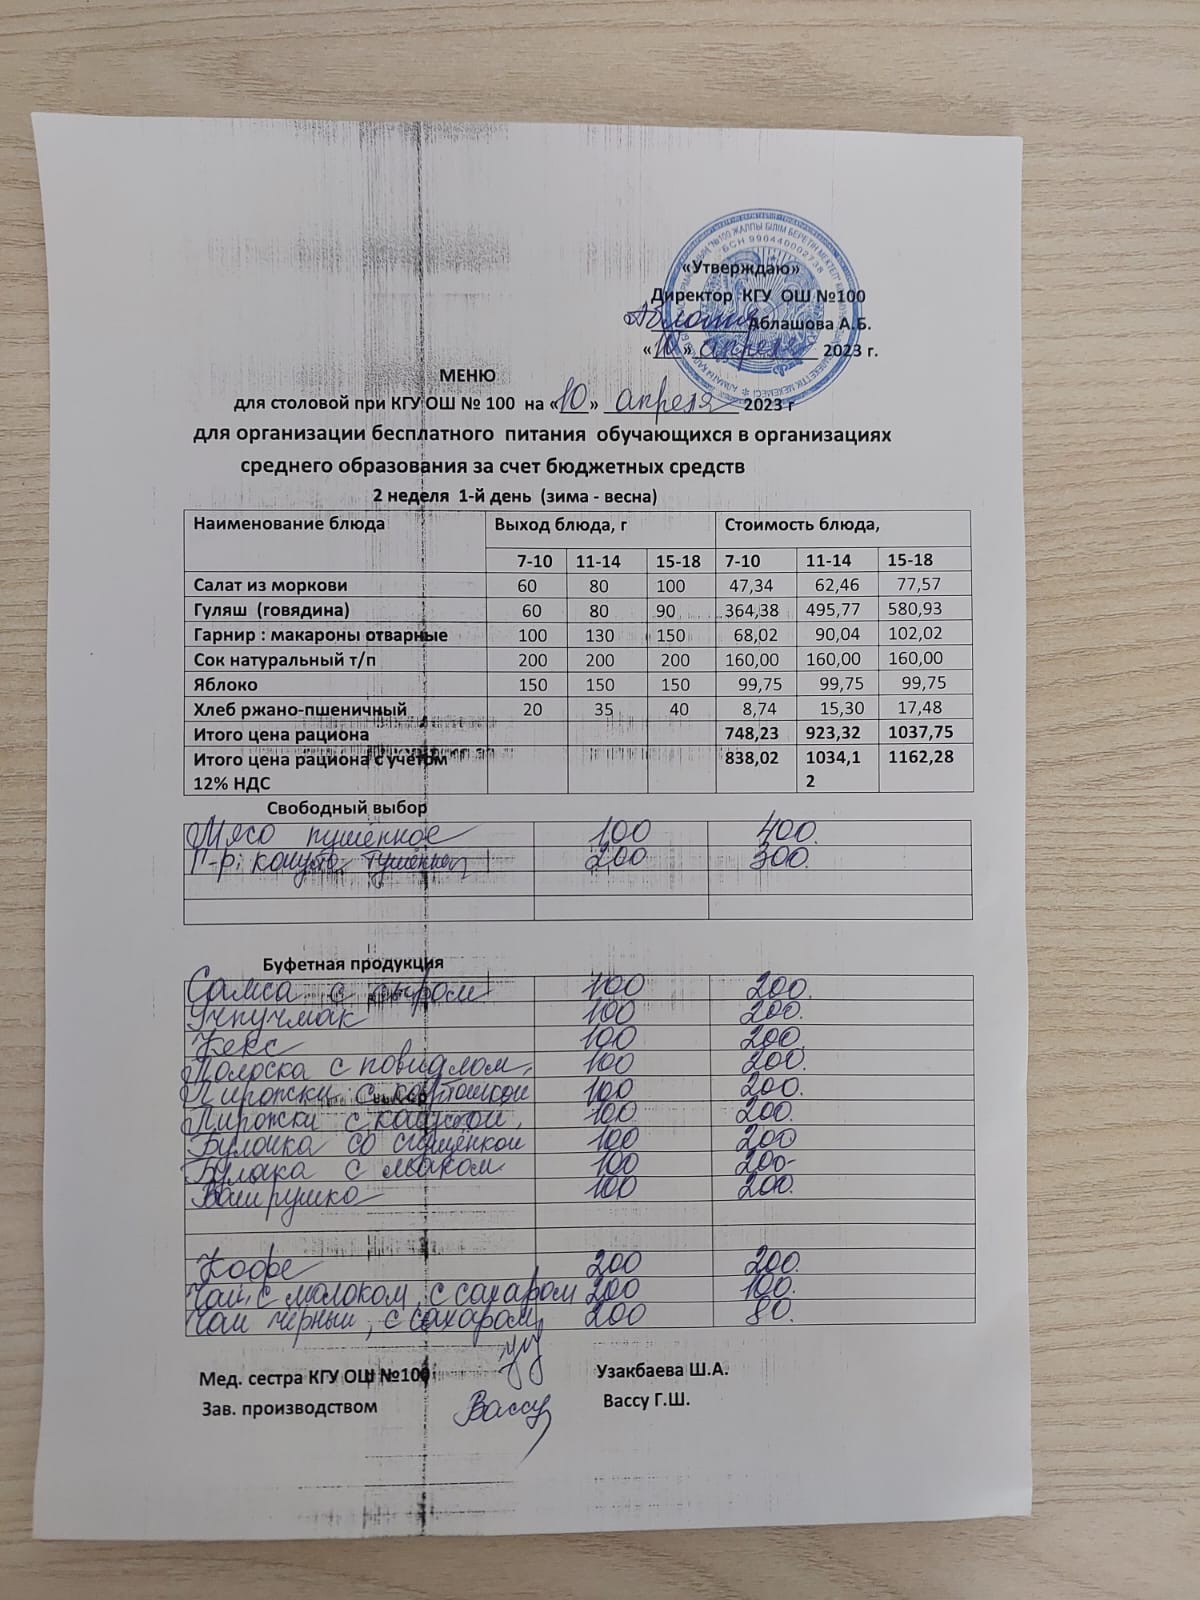 «Утверждаю»
Директор КГУ ОШ №100
Аблашова А.Б.
«10» апреля 2023 г.
МЕНЮ
для столовой при КГУ ОШ № 100 на «10» апреля 2023 г
для организации бесплатного питания обучающихся в организациях
среднего образования за счет бюджетных средств
2 неделя 1-й день (зима - весна)
Наименование блюда Выход блюда, г Стоимость блюда,
7-10 11-14 15-18 7-10 11-14 15-18
Салат из моркови 60 80 100 47,34 62,46 77,57
Гуляш (говядина) 60 80 90 364,38 495,77 580,93
Гарнир : макароны отварные 100 130 150 68,02 90,04 102,02
Сок натуральный т/п 200 200 200 160,00 160,00 160,00
Яблоко 150 150 150 99,75 99,75 99,75
Хлеб ржано-пшеничный 20 35 40 8,74 15,30 17,48
Итого цена рациона 748,23 923,32 1037,75
Итого цена рациона с учетом 838,02 1034,1 1162,28
12% НДС 2
Свободный выбор
Мясо тушенное 100 400.
Г-р: капуста тушеная 200 300.
Буфетная продукция
Самса с сыром 100 200.
Учпучмак 100 200.
Кекс 100 200.
Полоска с повидлом, 100 200.
Пирожки с картошкой 100 200.
Пирожки с капустой, 100 200.
Булочка со сгущёнкой 100 200
Булочка с маком 100 200-
Ватрушка 100 200.
Кофе 200 200.
Чай, с молоком, с сахаром 200 100.
Чай черный, с сахаром, 200 80.
Мед. сестра КГУ ОШ №100 Узакбаева Ш.А.
Зав. производством Вассу Вассу Г.Ш.